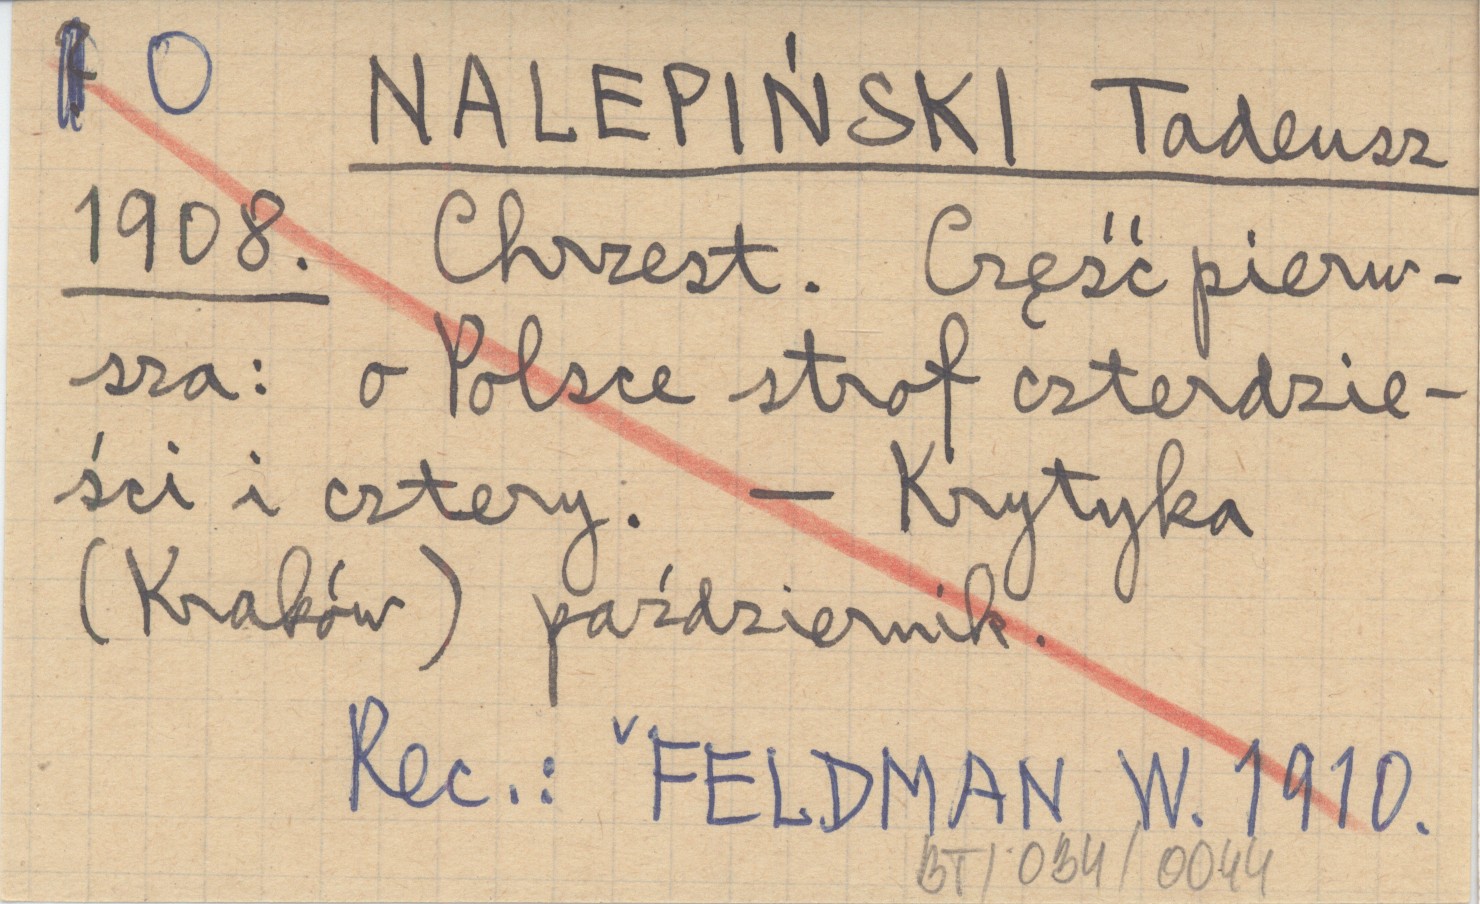 O NALEPIŃSKI Tadeusz
1908. Chrzest. Część pierw-
sza: o Polsce strof czterdzie-
ści i cztery. — Krytyka
(Kraków) październik.
Rec.: ˇFELDMAN W. 1910.
BT/034/0044